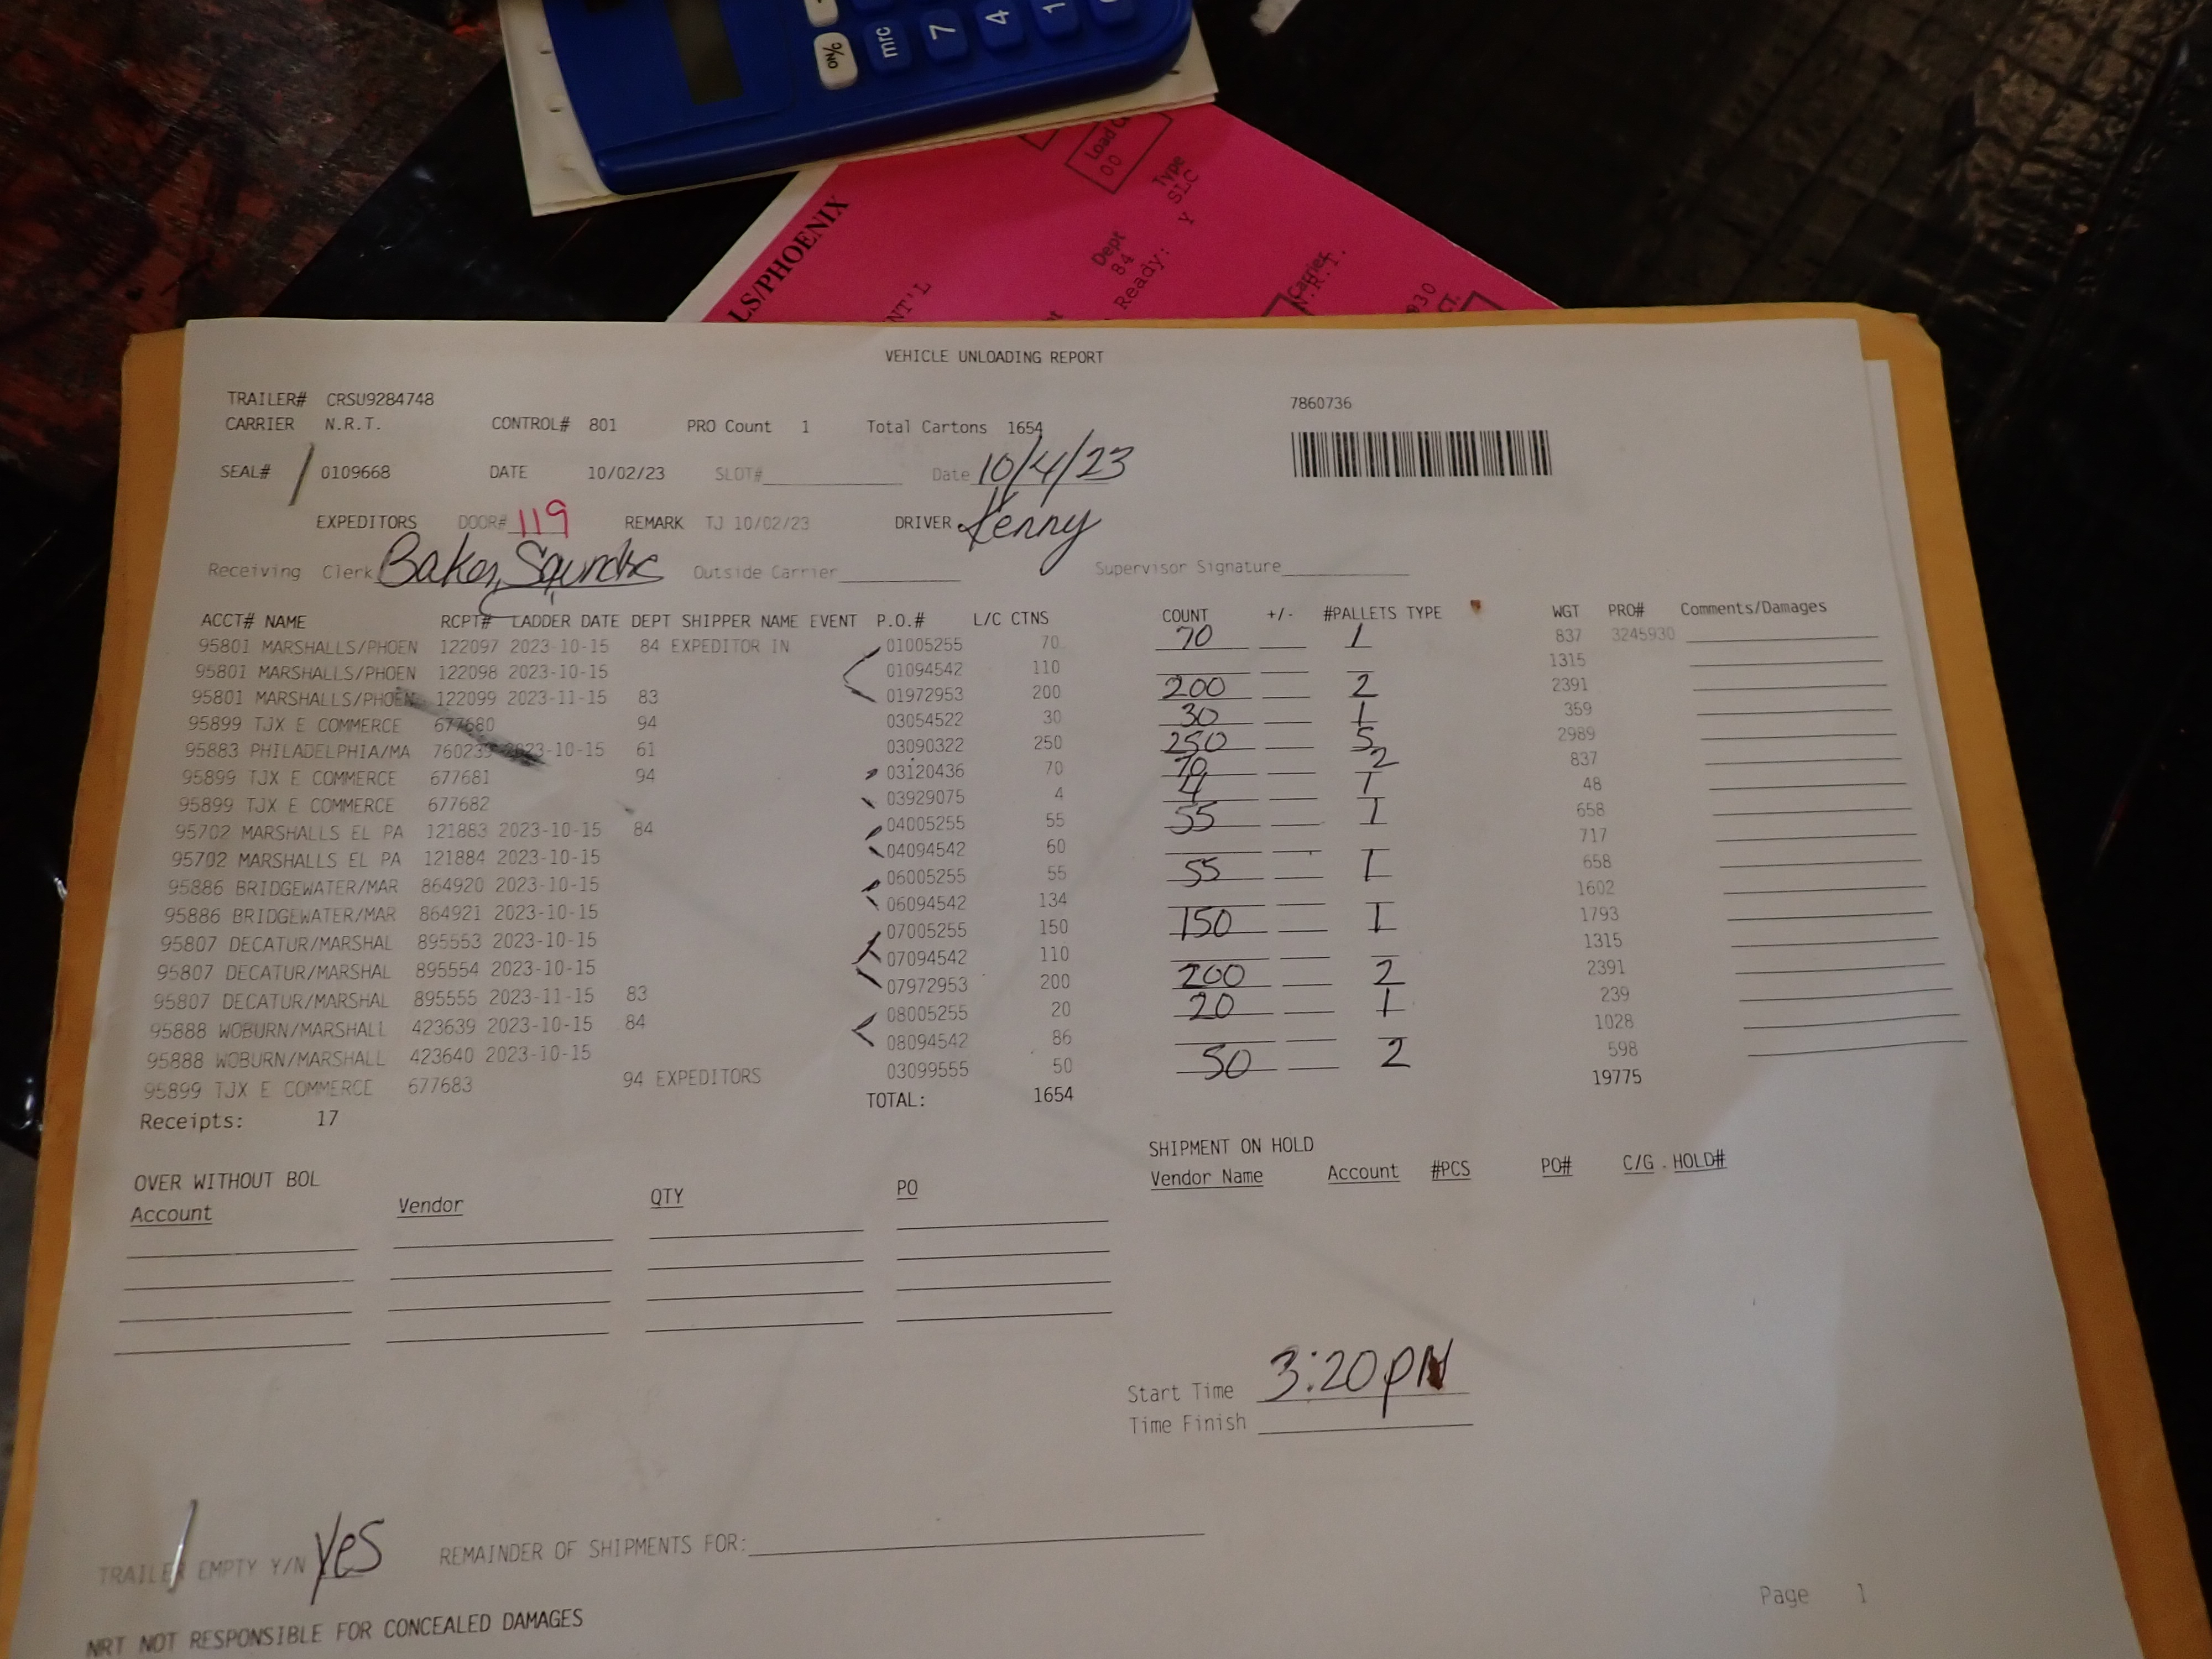 on/c mrc 7 4 1
LS/PHOENIX
NT'L
Dept
84
Ready: Y
Type
SLC
Load
00
Carrier
N.R.T.
930
CT.
VEHICLE UNLOADING REPORT
TRAILER# CRSU9284748 7860736
CARRIER N.R.T. CONTROL# 801 PRO Count 1 Total Cartons 1654
SEAL# 0109668 DATE 10/02/23 SLOT# Date 10/4/23
EXPEDITORS DOOR# 119 REMARK TJ 10/02/23 DRIVER Kenny
Receiving Clerk Baker, Outside Carrier Supervisor Signature
ACCT# NAME RCPT# LADDER DATE DEPT SHIPPER NAME EVENT P.O.# L/C CTNS COUNT +/- #PALLETS TYPE WGT PRO# Comments/Damages
95801 MARSHALLS/PHOEN 122097 2023-10-15 84 EXPEDITOR IN 01005255 70 70 1 837 3245930
95801 MARSHALLS/PHOEN 122098 2023-10-15 01094542 110 1315
95801 MARSHALLS/PHOEN 122099 2023-11-15 83 01972953 200 200 2 2391
95899 TJX E COMMERCE 677680 94 03054522 30 30 1 359
95883 PHILADELPHIA/MA 760239 2023-10-15 61 03090322 250 250 5 2989
95899 TJX E COMMERCE 677681 94 03120436 70 70 2 837
95899 TJX E COMMERCE 677682 03929075 4 4 1 48
95702 MARSHALLS EL PA 121883 2023-10-15 84 04005255 55 55 1 658
95702 MARSHALLS EL PA 121884 2023-10-15 04094542 60 717
95886 BRIDGEWATER/MAR 864920 2023-10-15 06005255 55 55 1 658
95886 BRIDGEWATER/MAR 864921 2023-10-15 06094542 134 1602
95807 DECATUR/MARSHAL 895553 2023-10-15 07005255 150 150 1 1793
95807 DECATUR/MARSHAL 895554 2023-10-15 07094542 110 1315
95807 DECATUR/MARSHAL 895555 2023-11-15 83 07972953 200 200 2 2391
95888 WOBURN/MARSHALL 423639 2023-10-15 84 08005255 20 20 1 239
95888 WOBURN/MARSHALL 423640 2023-10-15 08094542 86 1028
95899 TJX E COMMERCE 677683 94 EXPEDITORS 03099555 50 50 2 598
Receipts: 17 TOTAL: 1654 19775
OVER WITHOUT BOL SHIPMENT ON HOLD
Account Vendor QTY PO Vendor Name Account #PCS PO# C/G HOLD#
Start Time 3:20 PM
Time Finish
TRAILER EMPTY Y/N Yes REMAINDER OF SHIPMENTS FOR:
Page 1
NRT NOT RESPONSIBLE FOR CONCEALED DAMAGES